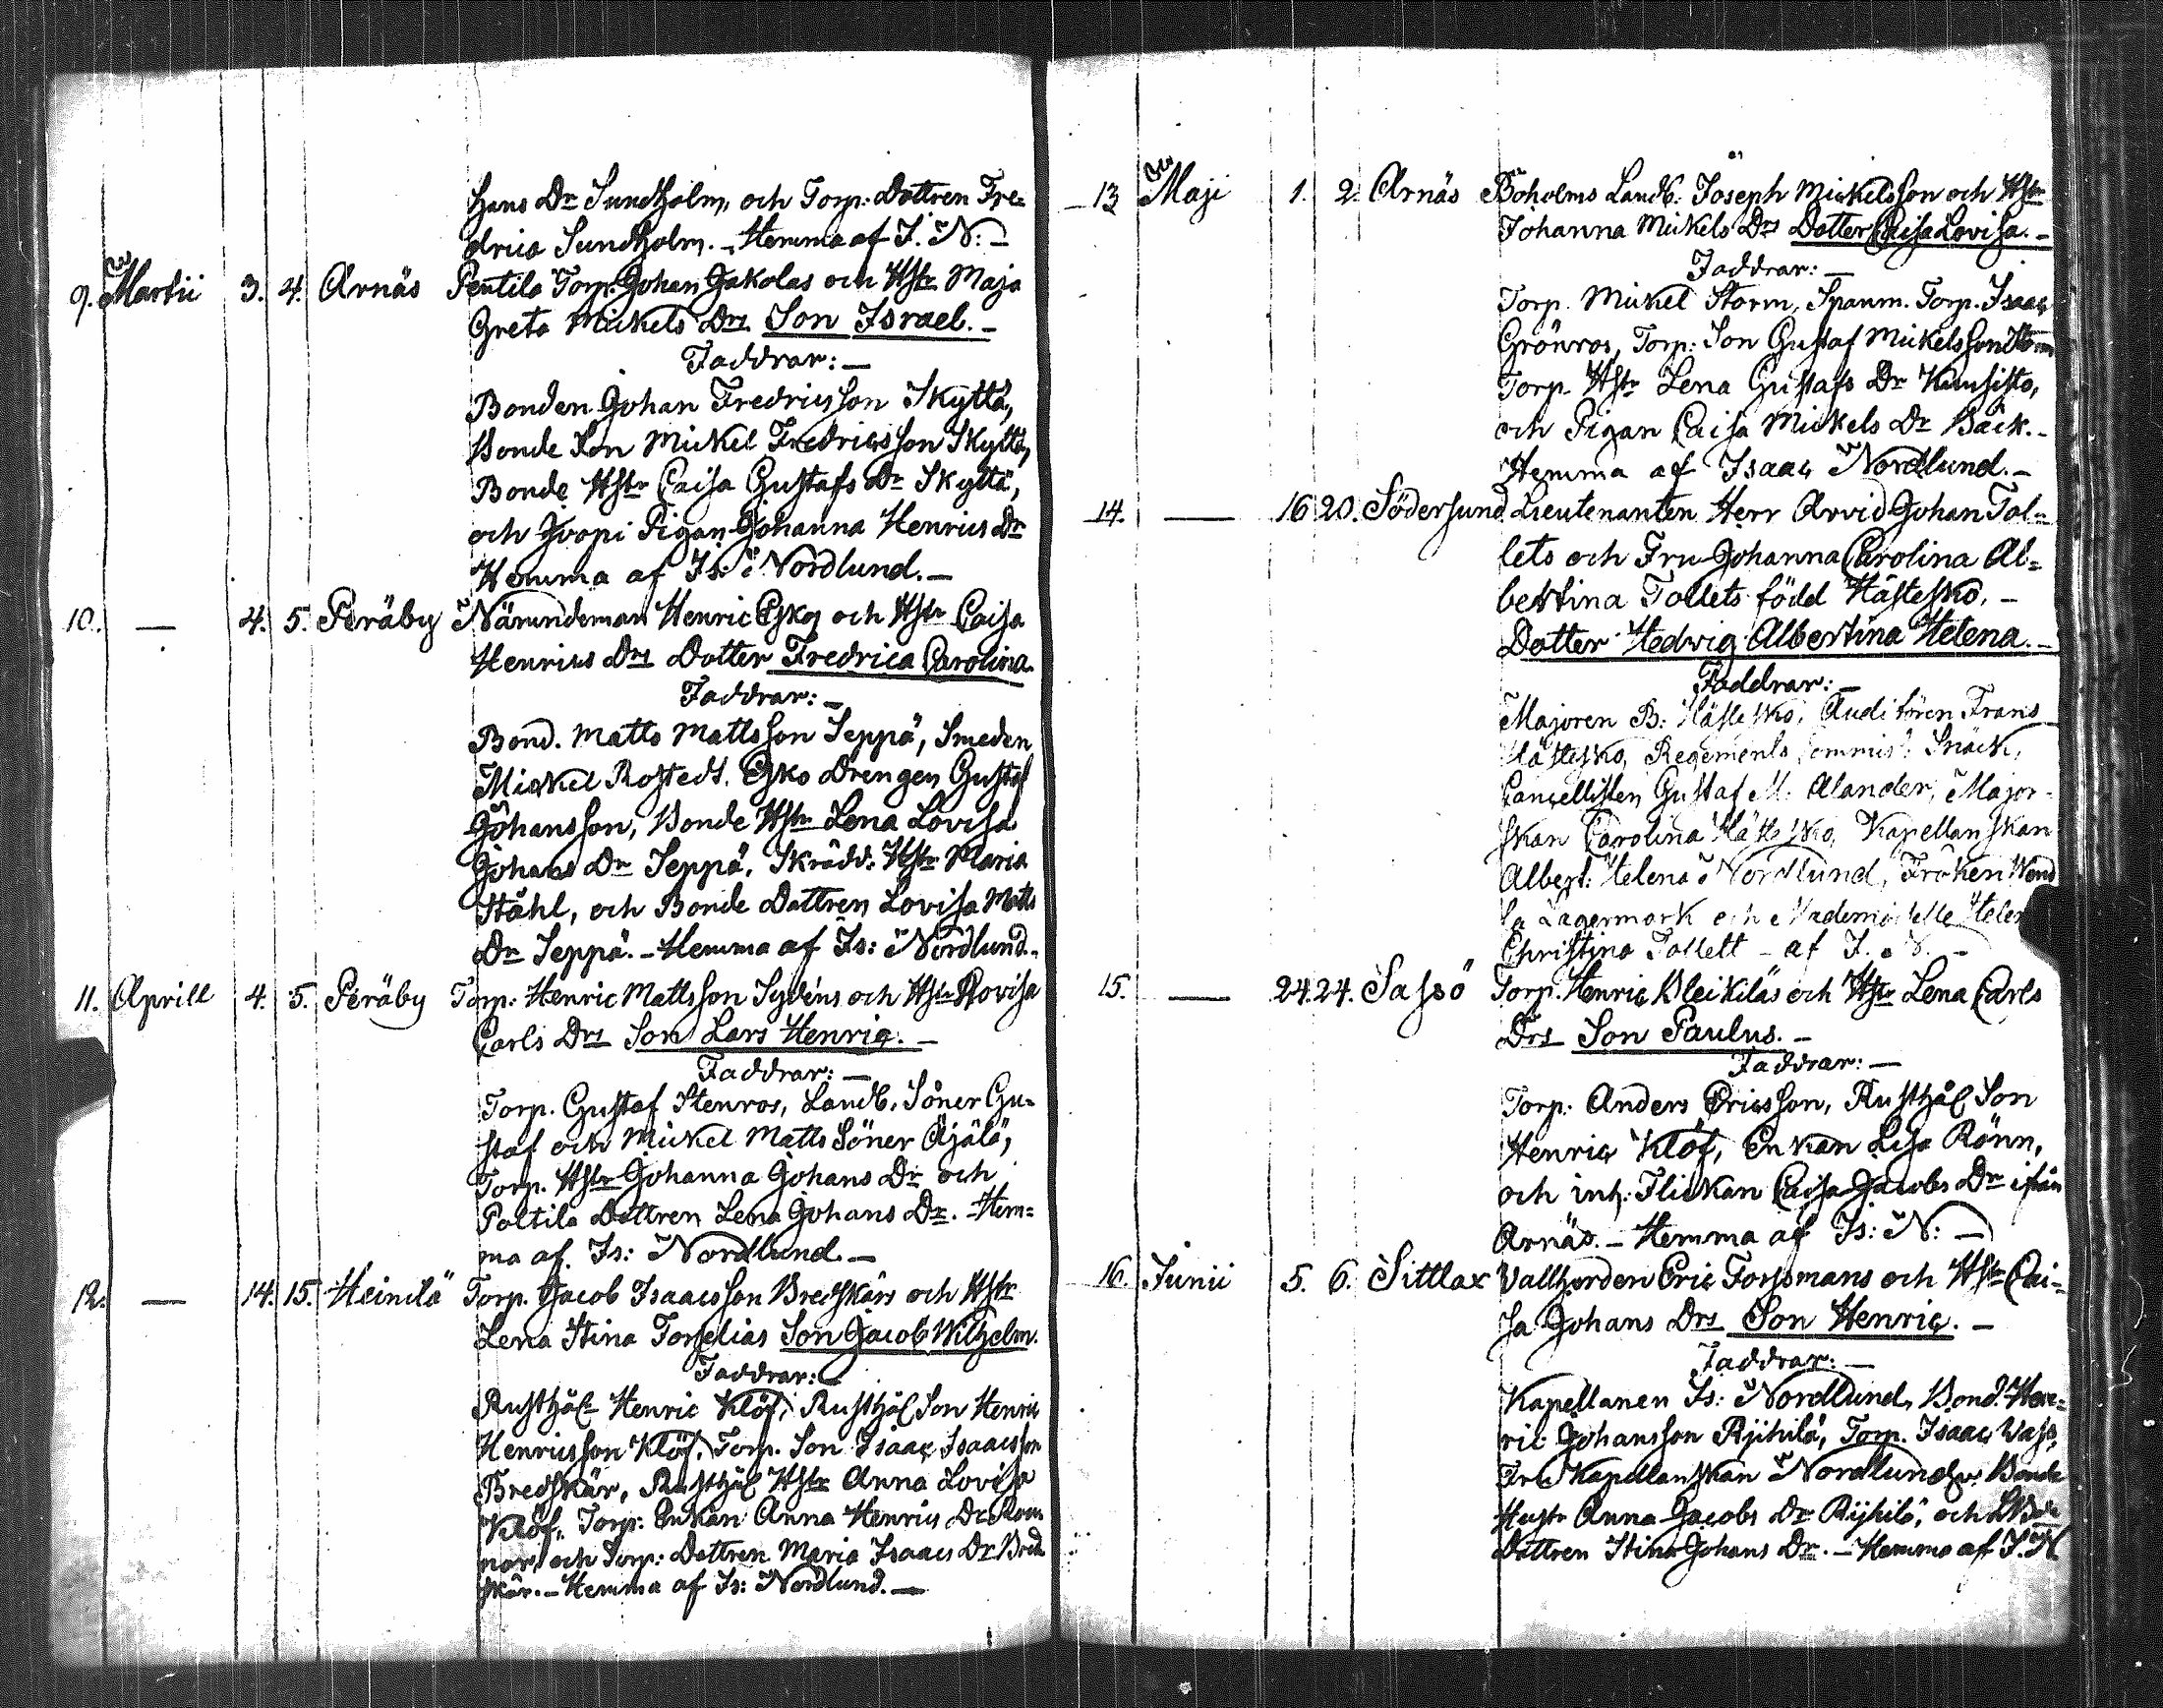 Hans Dr Sundholm, och Torp: Dottren Fre-
drica Sundholm. - Hemma af I. N: -
9. Martii 3. 4. Arnäs Pentila Torp. Johan Jakolas och Hstr Maja
Greta Mickels Drs Son Israel. -
Faddrar: -
Bonden Johan Fredricsson Skyttä,
Bonde Son Mickel Fredricsson Skyttä,
Bonde Hstr Caisa Gustafs Dr Skyttä,
och Pigan Johanna Henrics Dr
Hemma af Is: Nordlund. -
10. — 4. 5. Peräby Nämndeman Henric Esko och Hstr Caisa
Henrics Drs Dotter Fredrica Carolina.
Faddrar: -
Bond. Matts Mattsson Seppä, Smeden
Mickel Rostedt. Esko Drengen Gustaf
Johansson, Bonde Hstr Lena Lovisa
Johans Dr Seppä. Skrädd: Hstr Maria
Ståhl, och Bonde Dottren Lovisa Matts
Dr Seppä. - Hemma af Is: Nordlund. -
11. Aprill 4. 5. Peräby Torp: Henric Mattsson Sydéns och Hstr Lovisa
Carls Drs Son Lars Henric. -
Faddrar: -
Torp. Gustaf Stenros, Landb. Söner Gu-
staf och Mickel Matts Söner Äjälä,
Torp. Hstr Johanna Johans Dr och
Poltila Dottren Lena Johans Dr. - Hem-
ma af Is: Nordlund. -
12. — 14. 15. Heinilä Torp. Jacob Isaacsson Bredskärs och Hstr
Lena Stina Torselias Son Jacob Wilhelm.
Faddrar: -
Rusthål. Henric Klöf, Rusthål Son Henric
Henricsson Klöf. Torp. Son Isaac Isaacsson
Bredskär, Rusthål Hstr Anna Lovisa
Klöf. Torp: Enkan Anna Henrics Dr Rom
nor, och Torp: Dottren Maria Isaacs Dr Bred
skär. - Hemma af Is: Nordlund. -
13 Maji 1. 2. Arnäs Böholms Landb. Joseph Mickelsson och Hstr
Johanna Mickels Drs Dotter Caisa Lovisa. -
Faddrar: -
Torp. Mickel Storm, Spanm. Torp. Isaac
Grönros, Torp: Son Gustaf Mickelsson Storm
Torp. Hstr Lena Gustafs Dr Kuusisto,
och Pigan Caisa Mickels Dr Bäck. -
Hemma af Isaac Nordlund. -
14. — 16 20. Södersund Lieutenanten Herr Arvid Johan Tol-
lets och Fru Johanna Carolina Al-
bertina Tollets född Hästesko. -
Dotter Hedwig Albertina Helena. -
Faddrar: -
Majoren B: Hästesko, Auditören Frans
Hästesko, Regements Commis: Snäck,
Cancellisten Gustaf M: Alander, Major-
skan Carolina Hästesko, Kapellanskan
Albert: Helena Nordlund, Fröken Wend
la Lagermark och Mademoiselle Helen
Christina Tollett - af I. N. -
15. — 24. 24. Sassö Torp. Henric Kleikiläs och Hstr Lena Carls
Drs Son Paulus. -
Faddrar: -
Torp: Anders Ericsson, Rusthål Son
Henric Klöf, Enkan Lisa Rönn,
och inh: Flickan Caisa Jacobs Dr ifrån
Arnäs. - Hemma af Is: N: -
16. Junii 5. 6. Sittlax Vallherden Eric Forssmans och Hstr Cai-
sa Johans Drs Son Henric. -
Faddrar: -
Kapellanen Is: Nordlund, Bond. Hen-
ric Johansson Rijhilä, Torp. Isaac Wass,
Fru Kapellanskan Nordlund, Bonde
Hustr Anna Jacobs Dr Rijhilä, och
Dottren Stina Johans Dr. - Hemma af I. N